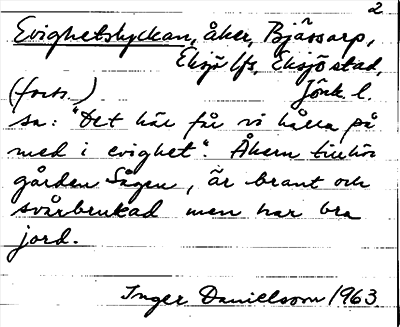 2
Evighetshyckan, åker, Bjässarp,
Eksjö lfs, Eksjö stad,
(forts.) Jönk. l.
sa: "Det här får vi hålla på
med i evighet". Åkern tillhör
gården Sågen, är brant och
svårbrukad men har bra
jord.
Inger Danielsson 1963